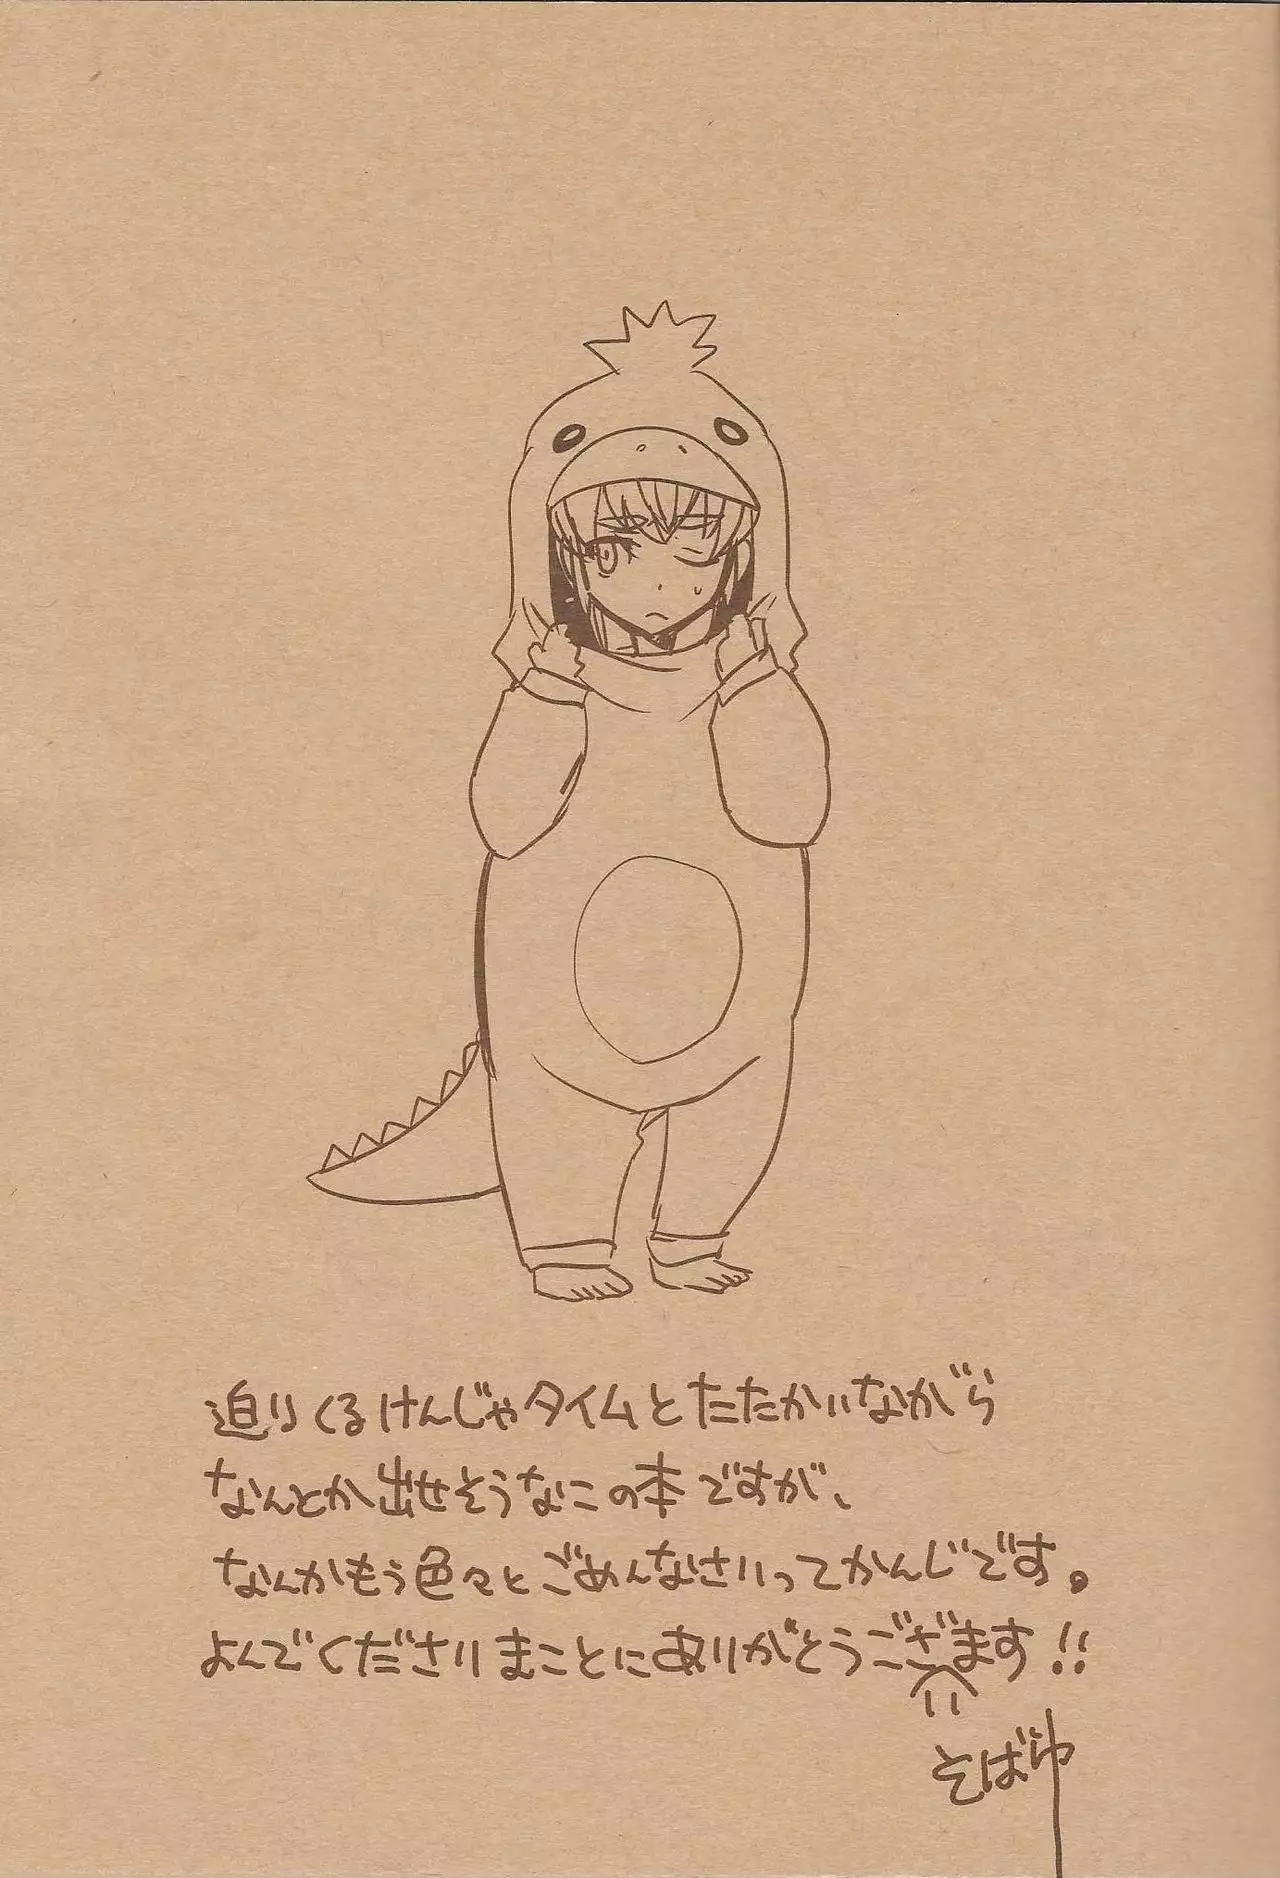 迫りくるけんじゃタイムとたたかいながら
なんとか出せそうなこの本ですが、
なんかもう色々とごめんなさいってかんじです。
よんでくださりまことにありがとうございます!!
そばゆ